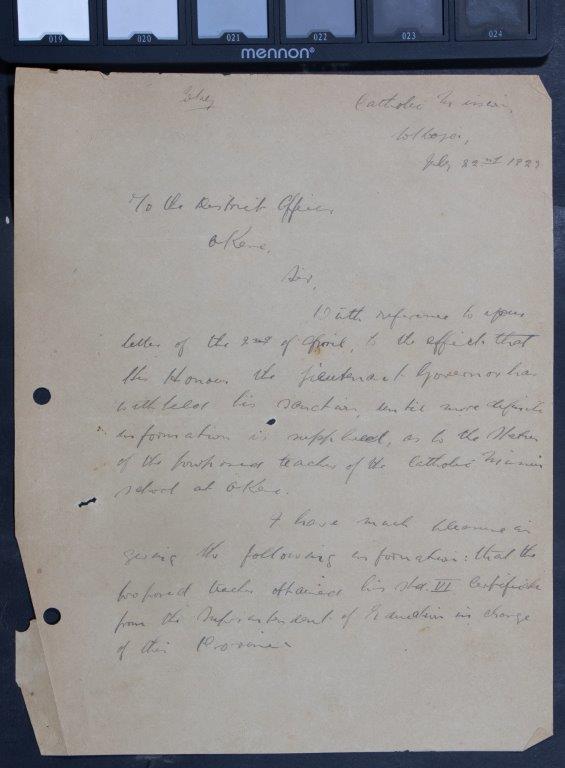 019 020 021 022 023 024
mennon®
Catholic Mission,
July 22nd 1929
To the District Officer
Okene.
Sir,
With reference to your
letter of the 2nd of April, to the effect that
His Honour the Lieutenant Governor has
withheld his sanction, until more definite
information is supplied, as to the status
of the proposed teacher of the Catholic Mission
school at Okene.
I have much pleasure in
giving the following information: that the
proposed teacher obtained his std. VI Certificate
from the Superintendent of Education in charge
of this Province